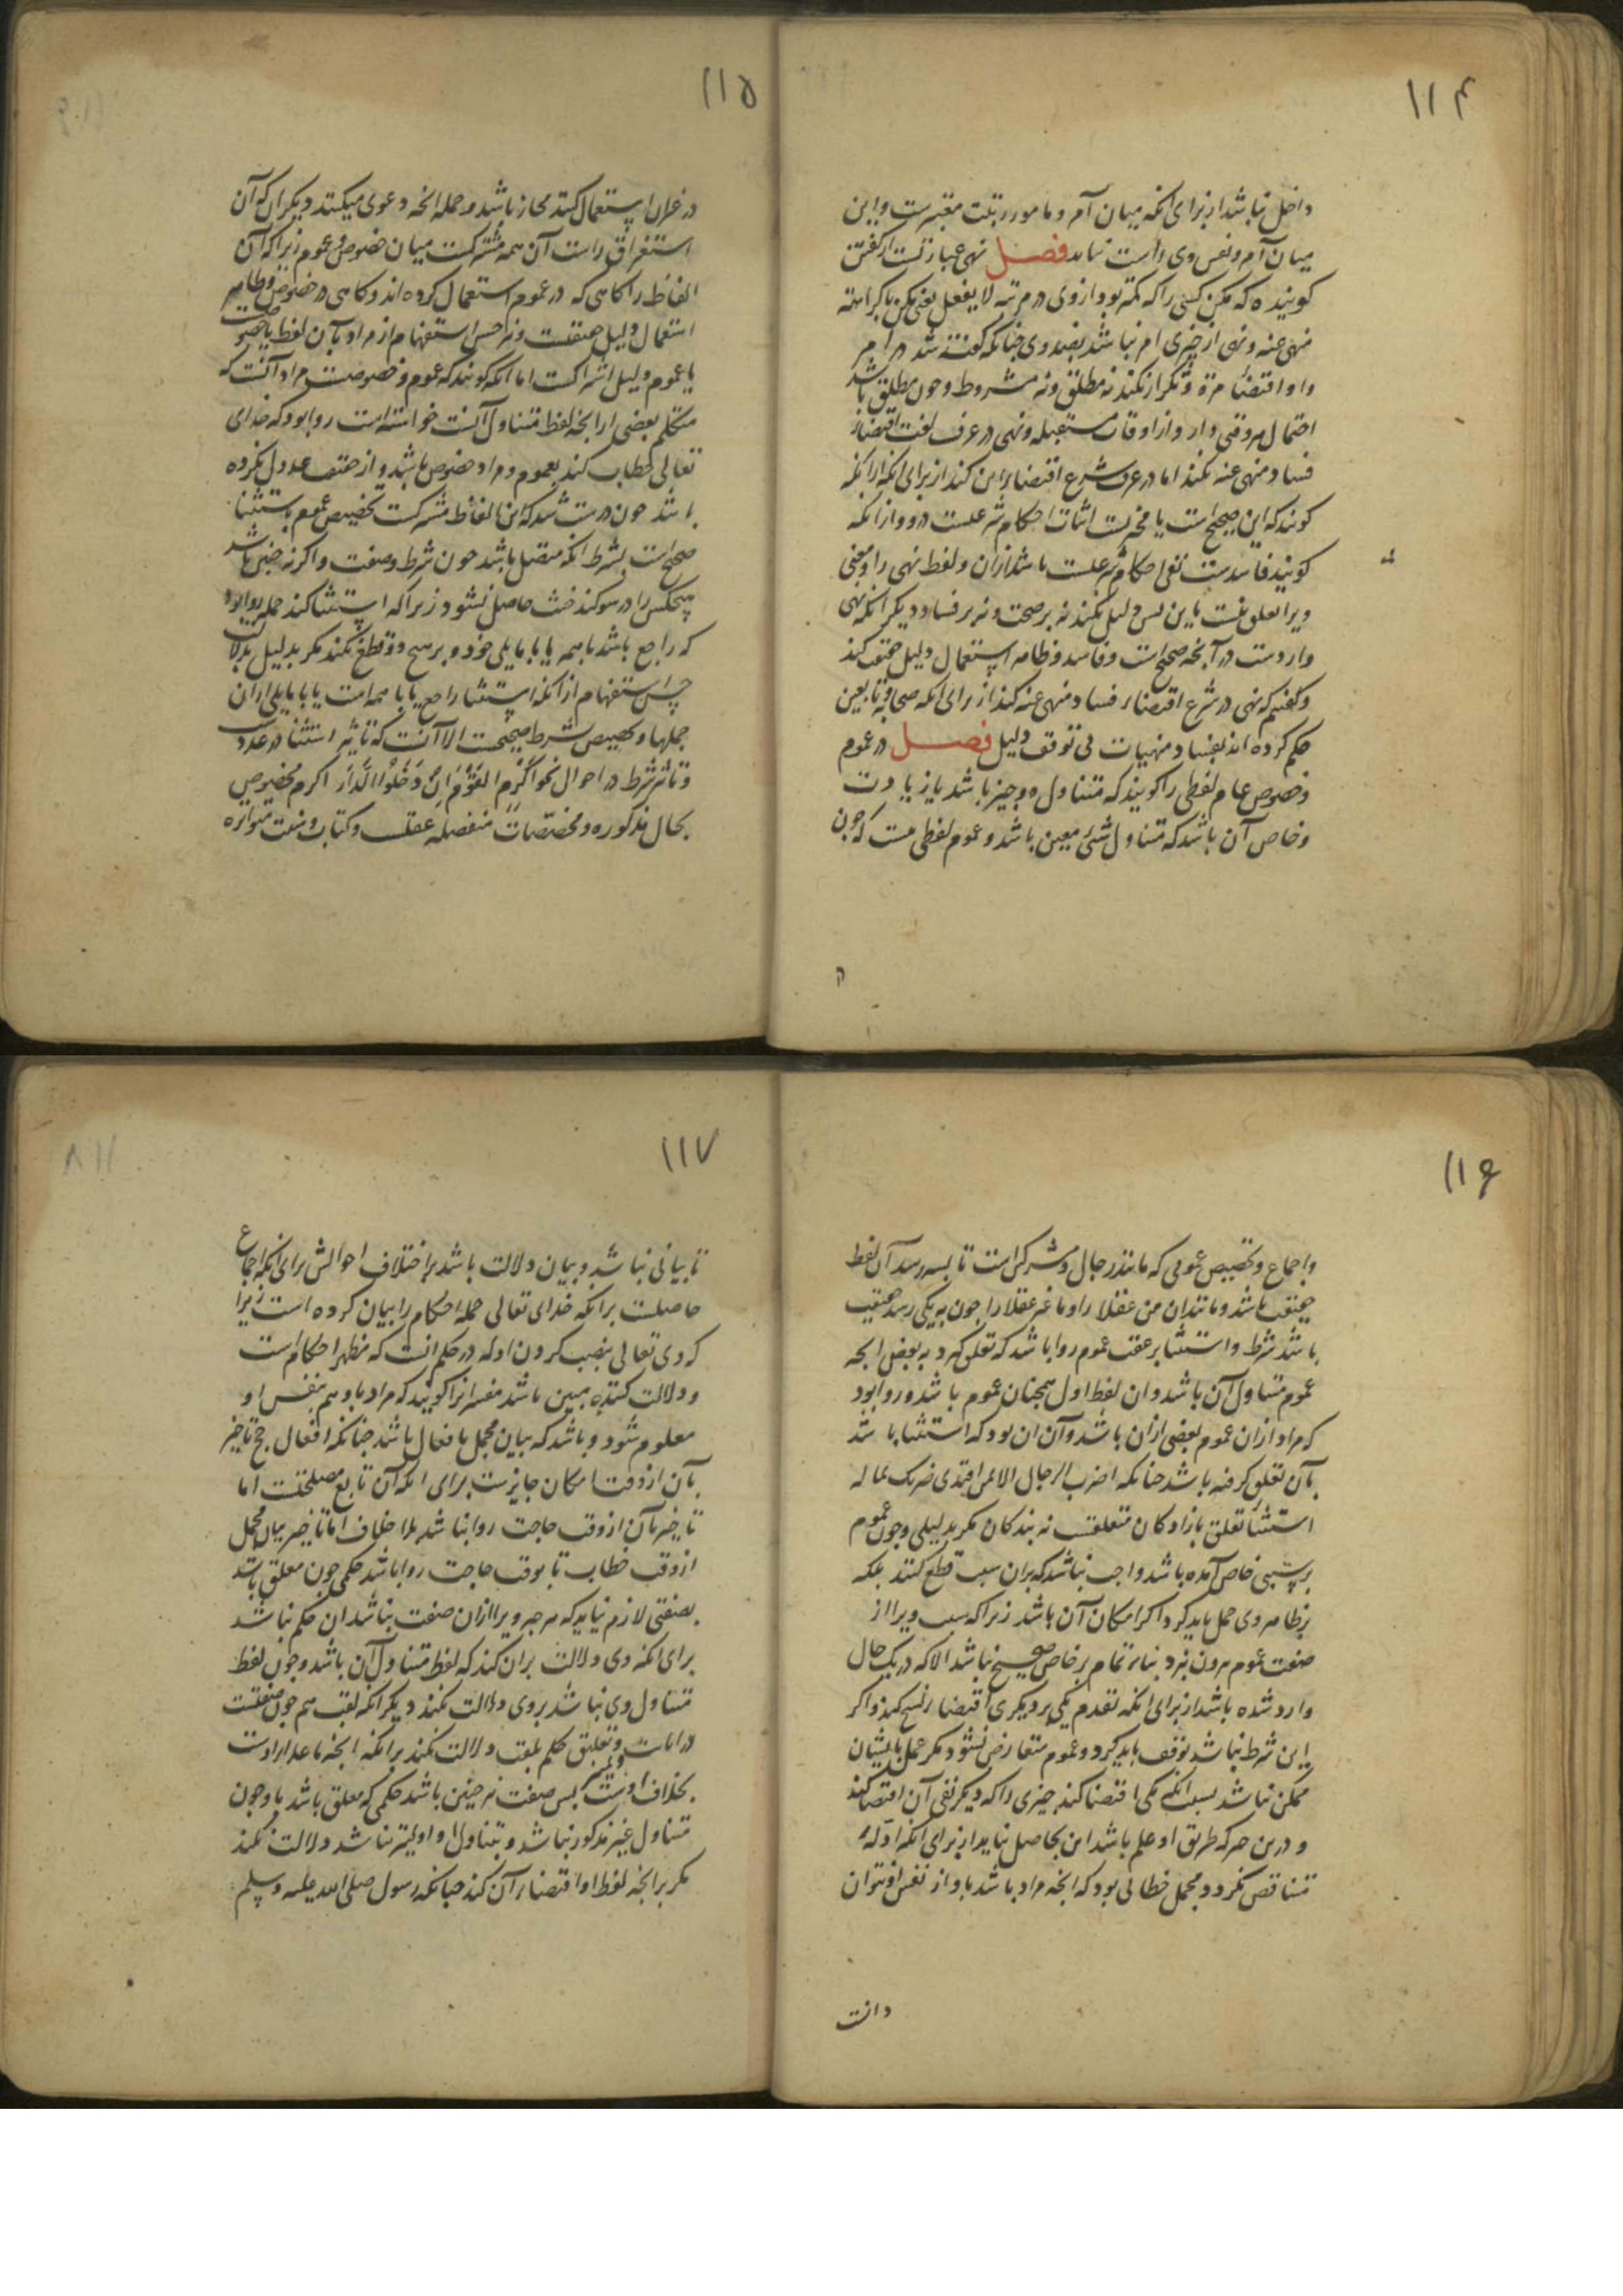 ۱۱۴
داخل نباشد از برای انکه میان آمر و مامور رتبت معتبرست و این
میان آمر و نفس وی راست نیاید فصل نهی عبارتست از کفتن
کوینده که مکن کسی را که کمتر بود از وی در مرتبه لا یفعل یعنی مکن با کراهته
منهی عنه و نهی از چیزی امر نباشد بضد وی چنانکه کفته شد در امر
و او اقتضاء مرة و تکرار نکند نه مطلق و نه مشروط و چون مطلق باشد
احتمال هر وقتی دارد از اوقات مستقبله و نهی در عرف لغت اقتضاء
فساد منهی عنه نکند اما در عرف شرع اقتضا براین کند از برای انکه ازانکه
کویند که این صحیح است یا مجزیست اثبات احکام شرعیست درو و ازانکه
کویند فاسدست نفی احکام شرعیست باشد ازان و لفظ نهی را و معنی
ویرا تعلق نیست باین پس دلیل نکند نه بر صحت و نه بر فساد و دیکر انکه نهی
واردست در آنچه صحیح است و فاسد و ظاهر استعمال دلیل حقیقت کند
و کفتیم که نهی در شرع اقتضاء فساد منهی عنه کند از برای انکه صحابه و تابعین
حکم کرده اند بفساد منهیات بی توقف دلیل فصل در عموم
و خصوص عام لفظی را کویند که متناول دو چیز باشد یا زیادت
و خاص آن باشد که متناول شیئ معین باشد و عموم لفظی هست که چون
۱۱۵
در غیر ان استعمال کنند مجاز باشد و جمله انچه دعوی میکنند دیکران که آن
استغراق راست آن همه مشترکست میان خصوص و عموم زیرا که آن
الفاظ را کاهی که در عموم استعمال کرده اند و کاهی در خصوص و ظاهر
استعمال دلیل حقیقتست و نیز حسن استفهام از مراد بآن لفظ با خصوصیت
یا عموم دلیل اشتراکست اما انکه کویند که عموم و خصوصست مراد آنست که
متکلم بعضی را از انچه لفظ متناول آنست خواسته است روا بود که خدای
تعالی خطاب کند بعموم و مراد خصوص باشد و از حقیقت عدول نکرده
باشد چون درست شد که این الفاظ مشترکست تخصیص عموم باستثنا
صحیح است بشرط انکه متصل باشد چون شرط و صفت و اکر نه چنین باشد
هیچکس را در سوکند حنث حاصل نشود زیرا که استثنا کند جمله روا بود
که راجع باشد با همه یا با ما یلی خود و بر هیچ دو قطع نکند مکر بدلیل بدلالت
حسن استفهام از انکه استثنا راجع یا با همه است یا با ما یلی ازان
جملها و تخصیص بشرط صحیحست الا آنست که تاثیر استثنا در عددست
و تاثیر شرط در احوال نحو اَکْرِمِ القَوْمَ اِنْ دَخَلُوا الدَّارَ اکرم مخصوص
بحال مذکوره و مخصصات منفصله عقلست و کتاب و سنت متواتره
۱۱۶
و اجماع و تخصیص عمومی که مانند رجال و مشرکین است تا بسه رسد آن لفظ
حقیقت باشد و مانند ان من عقلا را و ما غیر عقلا را چون به یکی رسد حقیقت
باشد شرط و استثنا بر عقب عموم روا باشد که تعلق کیرد به بعض انچه
عموم متناول آن باشد و ان لفظ اول همچنان عموم باشد و روا بود
که مراد ازان عموم بعضی ازان باشد و آن ان بود که استثنا با شد
بآن تعلق کرفته باشد چنانکه اضرب الرجال الا من افتدی ضربک بماله
استثنا تعلق بازادکان متعلقست نه بندکان مکر بدلیلی و چون عموم
بر سببی خاص آمده باشد واجب نباشد که بران سبب قطع کنند بلکه
بر ظاهر وی حمل باید کرد اکر امکان آن باشد زیرا که سبب ویرا از
صفت عموم بیرون نبرد بناء تمام بر خاص صحیح نباشد الا که در یک حال
وارد شده باشد از برای انکه تقدم یکی بر دیکری اقتضاء نسخ کند و اکر
این شرط نباشد توقف باید کرد و عموم متعارض نشود مکر عمل بایشان
ممکن نباشد بسبب انکه یکی اقتضا کند چیزی را که دیکر نفی آن اقتضا کند
و درین هر که طریق او علم باشد این بحاصل نیاید از برای انکه ادله
تناقض نکردد و مجمل خطابی بود که انچه مراد باشد باو از نفس او نتوان
دانست
۱۱۷
تا بیانی نباشد و بیان دلالت باشد بر اختلاف احوالش برای انکه اجماع
حاصلست بر انکه خدای تعالی جمله احکام را بیان کرده است زیرا
که وی تعالی بنصب کردن ادله در حکم انست که مظهر احکام است
و دلالت کننده مبین باشد مفسر انرا کویند که مراد باو هم بنفس او
معلوم شود و باشد که بیان مجمل بافعال باشد چنانکه افعال حج تاخیر
بآن از وقت امکان جایزست برای انکه آن تابع مصلحتست اما
تاخیر بآن از وقت حاجت روا نباشد بلا خلاف اما تاخیر بیان مجمل
از وقت خطاب تا بوقت حاجت روا باشد حکمی چون معلق باشد
بصفتی لازم نیاید که هر چه ویرا ازان صفت نباشد ان حکم نباشد
برای انکه وی دلالت بران کند که لفظ متناول آن باشد و چون لفظ
متناول وی نباشد بر وی دلالت نکند دیکر انکه لقب هم چون صفتست
در اثبات و تعلیق حکم بلقب دلالت نکند بر انکه انچه ماعدا اوست
بخلاف اوست پس صفت نیز چنین باشد حکمی که معلق باشد باو چون
متناول غیر مذکور نباشد و بتناول او اولیتر نباشد دلالت نکند
مکر بر انچه لفظ او اقتضاء آن کند چنانکه رسول صلی الله علیه وسلم